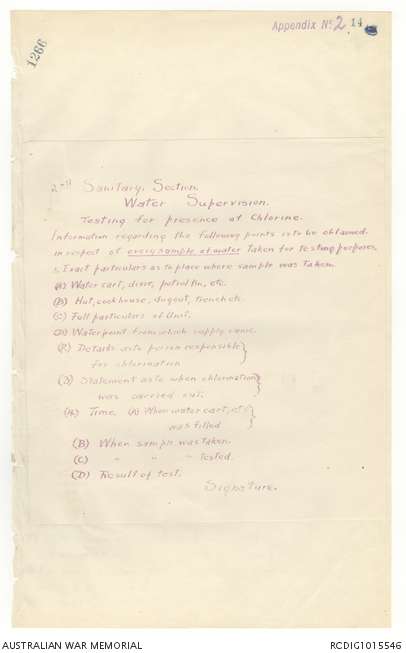 Appendix No 2 14
1266
2nd Sanitary. Section.
Water Supervision.
Testing for presence of Chlorine.
Information regarding the following points is to be obtained.
in respect of every sample of water Taken for testing purposes.
1. Exact particulars as to place where sample was Taken.
(A) Water cart, dixie, petrol tin, etc.
(B) Hut, cookhouse, dugout, trench etc.
(C) Full particulars of Unit.
(D) Waterpoint from which supply came.
Details as to person responsible
for chlorination
Statement as to when chlorination
was carried out.
Time. (A) When water cart, etc
was filled
(B) When sample was taken.
(C) " " " tested.
(D) Result of test.
Signature.
AUSTRALIAN WAR MEMORIAL
RCDIG1015546